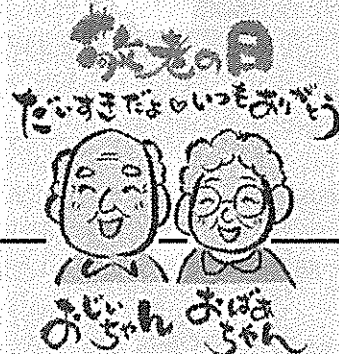 敬老の日
だいすきだよ♡いつもありがとう
おじいちゃん おばあちゃん